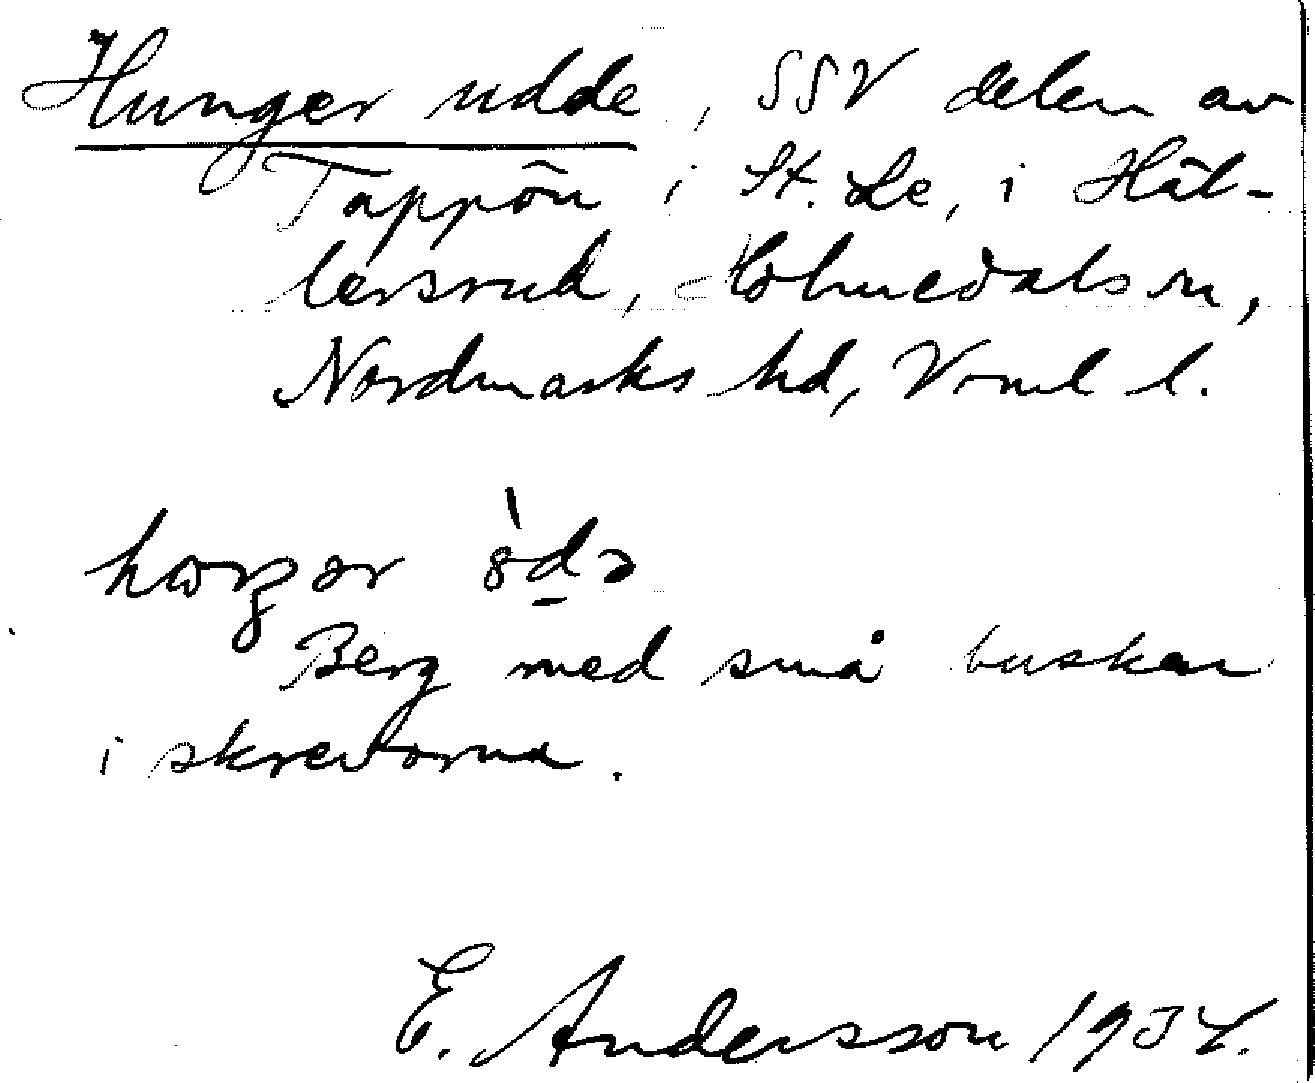 Hunger udde, SSV delen av
Tappön i St. Le, i Häl-
lersrud, Holmedals sn,
Nordmarks hd, Vrml l.
Berg med små buskar
i skrevorna.
E. Andersson 1934.